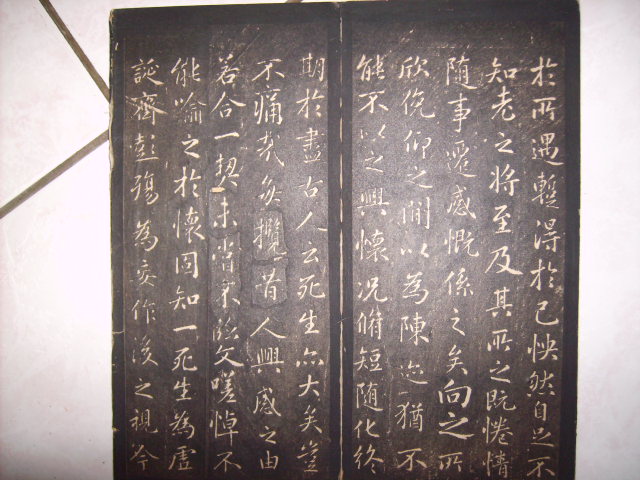 於所遇暫得於己怏然自足不
知老之將至及其所之既惓情
隨事遷感慨係之矣向之所
欣俛仰之閒以為陳迹猶不
能不以之興懷況脩短隨化終
期於盡古人云死生亦大矣豈
不痛哉每攬昔人興感之由
若合一契未嘗不臨文嗟悼不
能喻之於懷固知一死生為虛
誕齊彭殤為妄作後之視今